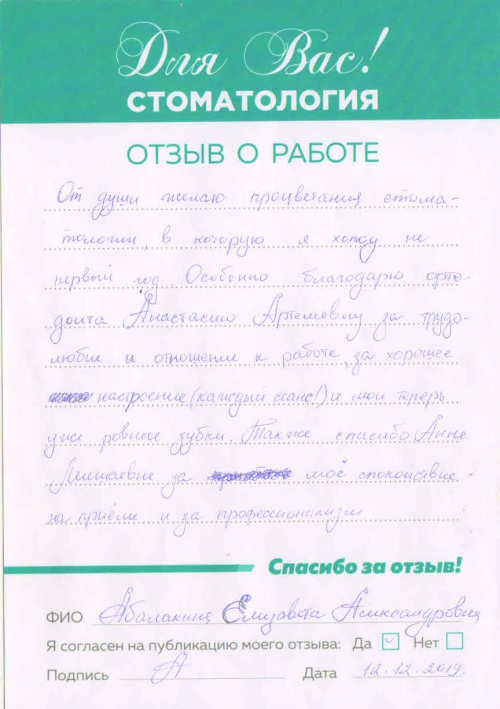 Для Вас!
СТОМАТОЛОГИЯ
ОТЗЫВ О РАБОТЕ
От души желаю процветания стома-
тологии, в которую я хожу не
первый год. Особенно благодарю орто-
донта Анастасию Артемовну за трудо-
любие и отношение к работе, за хорошее
настроение (каждый сеанс!) и мои теперь
уже ровные зубки. Также спасибо Анне
за моё спокойствие
на приёме и за профессионализм
Спасибо за отзыв!
ФИО Абалакина Елизавета Александровна
Я согласен на публикацию моего отзыва: Да Нет
Подпись А Дата 12.12.2019.